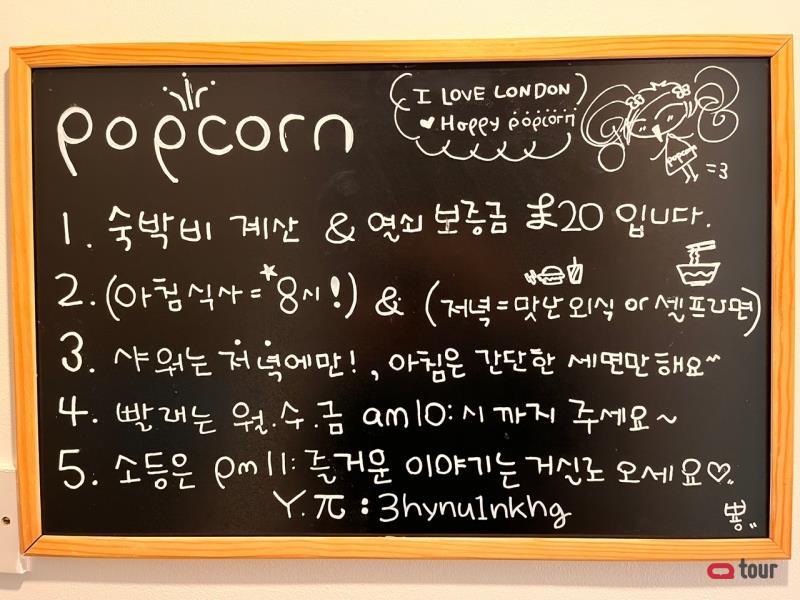 popcorn
I LOVE LONDON
♥ Happy popcorn
popcorn
=3
1. 숙박비 계산 & 열쇠 보증금 £20 입니다.
2. (아침식사= *8시!) & (저녁=맛난외식 or 셀프라면)
3. 샤워는 저녁에만!, 아침은 간단한 세면만해요~
4. 빨래는 월.수.금 am10:시까지 주세요~
5. 소등은 pm11: 즐거운 이야기는 거실로 오세요♡.
Y.π : 3hynu1nkhg
뿅..
tour